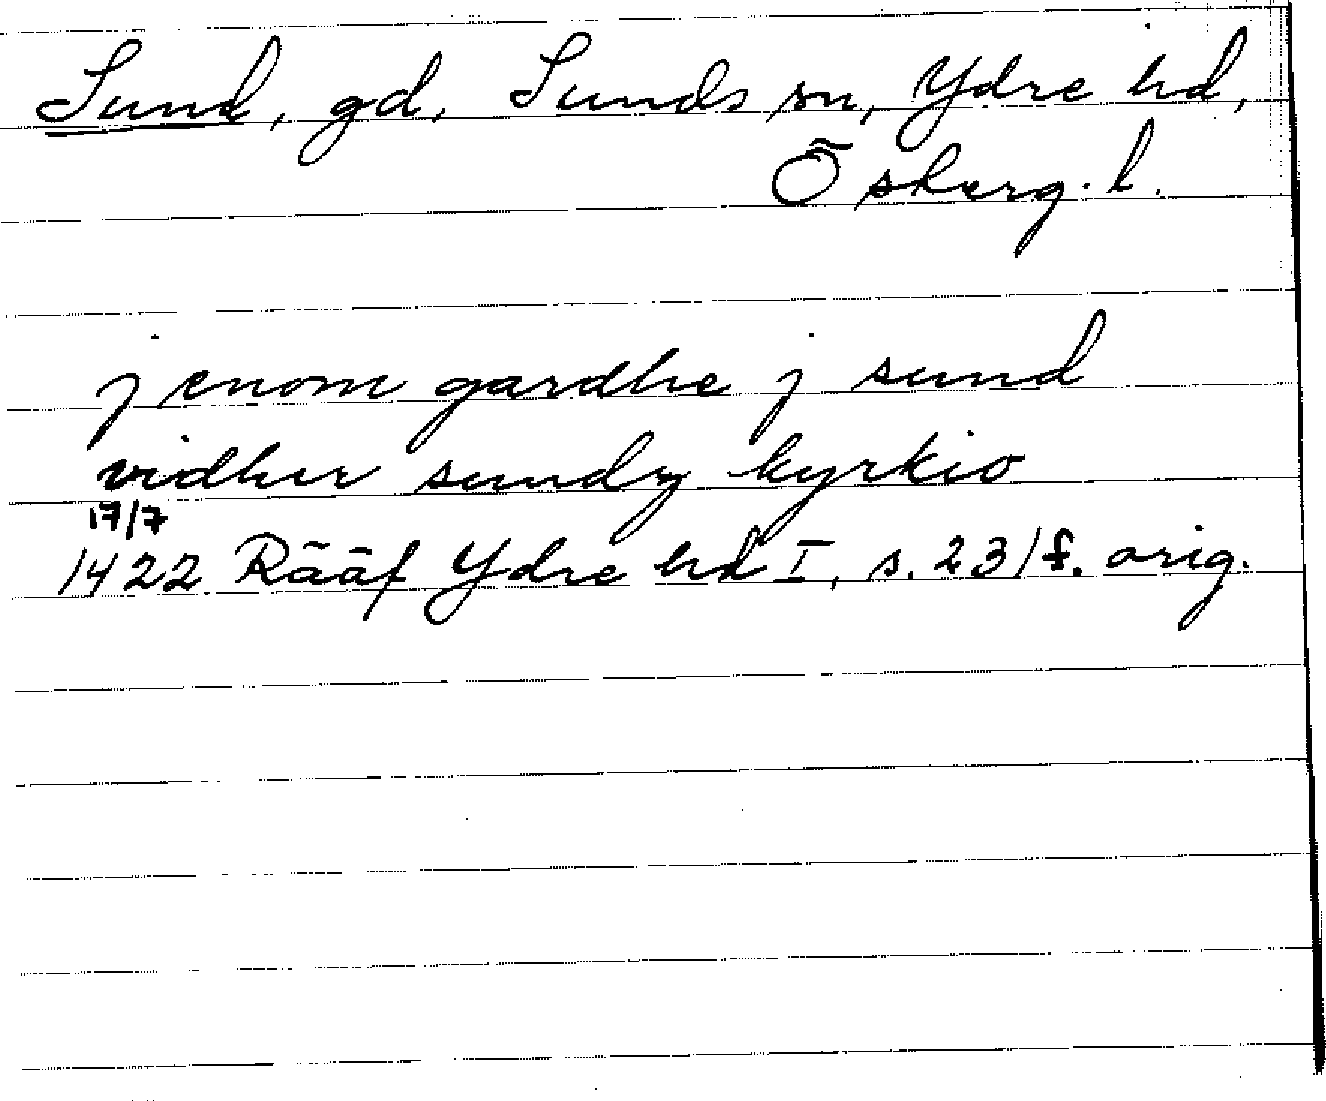 Sund, gd, Sunds sn, Ydre hd,
Ö sterg. l.
j enom gardhe j sund
vidhur sundz kyrkio
17/7
1422 Rääf Ydre hd I, s. 231 f. orig.